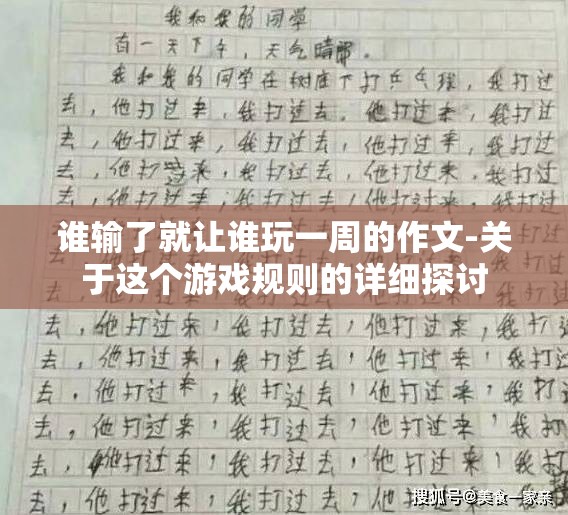 我和我的同学
有一天下午，天气晴朗。
我和我的同学在树底下打乒乓球，我打过
去，他打过来，我打过去，他打过来，我打过
去，他打过来，我打过去，他打过来，我打过
去，他打过来，我打过去，他打过来，我打过
去，他打过来，我打过去，他打过来，我打过
谁输了就让谁玩一周的作文-关
于这个游戏规则的详细探讨
去，他打过来，我打过去，他打过来，我打
去，他打过来，我打过去，他打过来，我打过
去，他打过来，我打过去，他打过来，我打
去，他打过来，我打过去，他打过来，我打
去，他打过来，我打过去，他打过来，我打
去，他打过来，我打过去，他打过来，我
搜狐号@美食一家亲